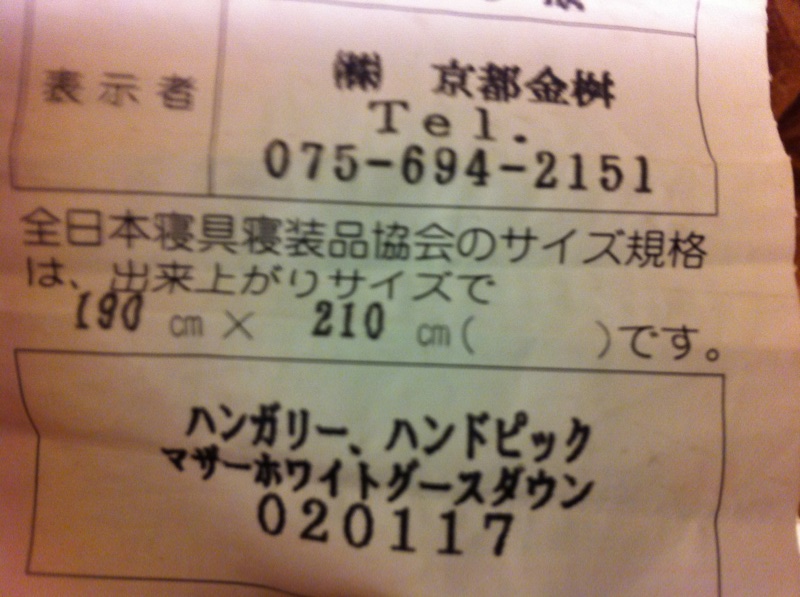 表示者
㈱ 京都金桝
Tel.
075-694-2151
全日本寝具寝装品協会のサイズ規格
は、出来上がりサイズで
190 cm × 210 cm( )です。
ハンガリー、ハンドピック
マザーホワイトグースダウン
020117